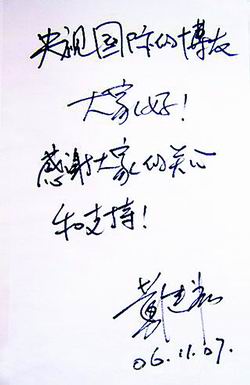 央视国际的博友
大家好!
感谢大家的关心
和支持!
黄
06.11.07.